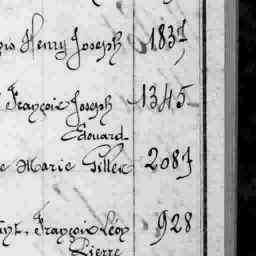 Henry Joseph 1837
François Joseph 1345
Edouard
Marie Gilles 2087
François Léop 928
Pierre